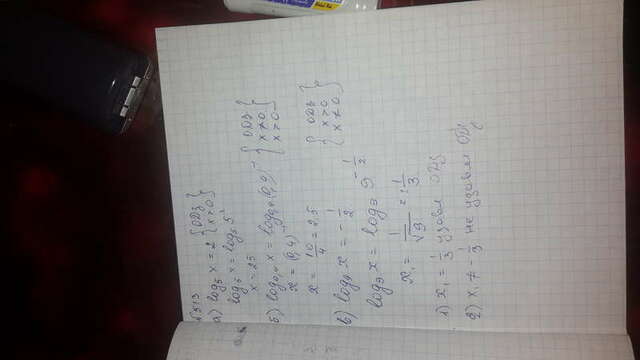 513
а) log₅ x = 2 { ОДЗ x > 0 }
log₅ x = log₅ 5²
x = 25
б) log₀,₄ x = log₀,₄ (0,4)⁻¹ { ОДЗ x ≠ 0 x > 0 }
x = (0,4)⁻¹
x = 10/4 = 2.5
в) log₉ x = -1/2 { ОДЗ x > 0 x ≠ 0 }
log₉ x = log₉ 9^(-1/2)
x₁ = 1/√9 = ±1/3
1) x₁ = 1/3 удовл ОДЗ
2) x₁ ≠ -1/3 не удовл ОДЗ